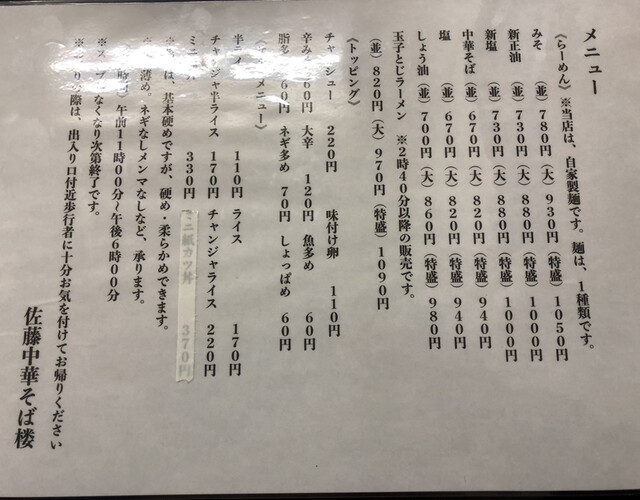 メニュー
《らーめん》※当店は、自家製麺です。麺は、1種類です。
みそ （並）780円（大）930円（特盛）1050円
新正油 （並）730円（大）880円（特盛）1000円
新塩 （並）730円（大）880円（特盛）1000円
中華そば （並）670円（大）820円（特盛）940円
塩 （並）670円（大）820円（特盛）940円
しょう油（並）700円（大）860円（特盛）980円
玉子とじラーメン ※2時40分以降の販売です。
（並）820円（大）970円（特盛）1090円
《トッピング》
チャーシュー 220円 味付け卵 110円
辛み 60円 大辛 120円 魚多め 60円
脂多 60円 ネギ多め 70円 しょっぱめ 60円
メニュー》
半ライ 110円 ライス 170円
チャンジャ半ライス 170円 チャンジャライス 220円
ミニ 丼 330円 ミニ紙カツ丼 370円
は、基本硬めですが、硬め・柔らかめできます。
薄め。ネギなしメンマなしなど、承ります。
時間 午前11時00分〜午後6時00分
※ス なくなり次第終了です。
の際は、出入り口付近歩行者に十分お気を付けてお帰りください
佐藤中華そば楼